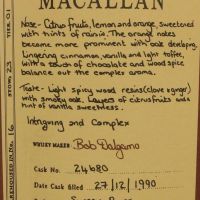 MACALLAN
Nose - Citrus fruits, lemon and orange, sweetened
with hints of raisin. The orange notes
become more prominent with oak developing.
Lingering cinnamon, vanilla and light toffee,
with a touch of chocolate and wood spice
balance out the complex aroma.
Taste - Light spicy wood resins (clove + ginger)
with smokey oak. Layers of citrus fruits and
hint of vanilla sweetness.
Intriguing and Complex
WHISKY MAKER Bob Dalgarno
CASK No. 24680
DATE CASK FILLED 27/12/1990
TIER: 01
STOW: 23
WAREHOUSED IN No. 16